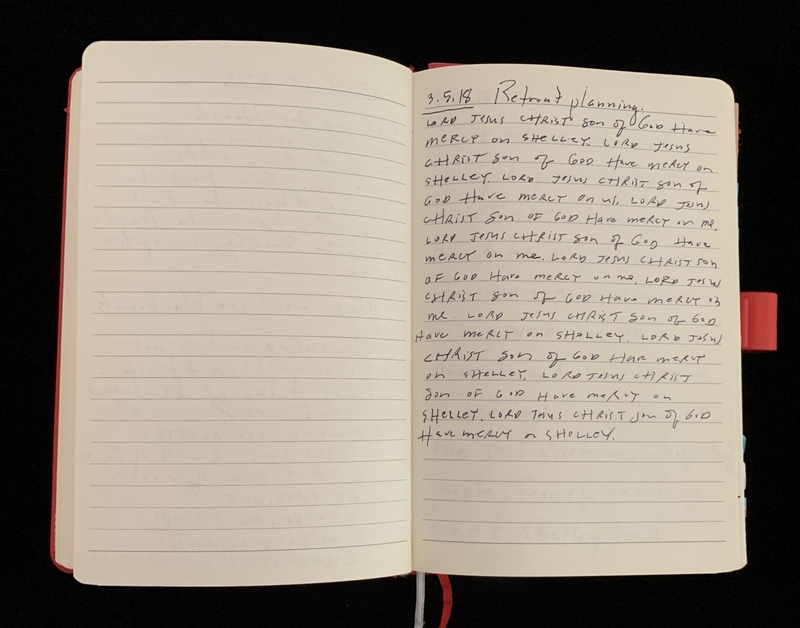 3.5.18 Retreat planning.
LORD JESUS CHRIST son of GOD Have
mercy on SHELLEY. LORD JESUS
CHRIST son of GOD Have mercy on
SHELLEY. LORD JESUS CHRIST son of
GOD Have mercy on us. LORD JESUS
CHRIST son OF GOD Have mercy on me.
LORD JESUS CHRIST son of GOD Have
mercy on me. LORD JESUS CHRIST son
OF GOD Have mercy on me. LORD JESUS
CHRIST son of GOD Have mercy on
me. LORD JESUS CHRIST son of GOD
Have mercy on SHELLEY. LORD JESUS
CHRIST son of GOD Have mercy
on SHELLEY. LORD JESUS CHRIST
son OF GOD Have mercy on
SHELLEY. LORD JESUS CHRIST son of GOD
Have mercy on SHELLEY.